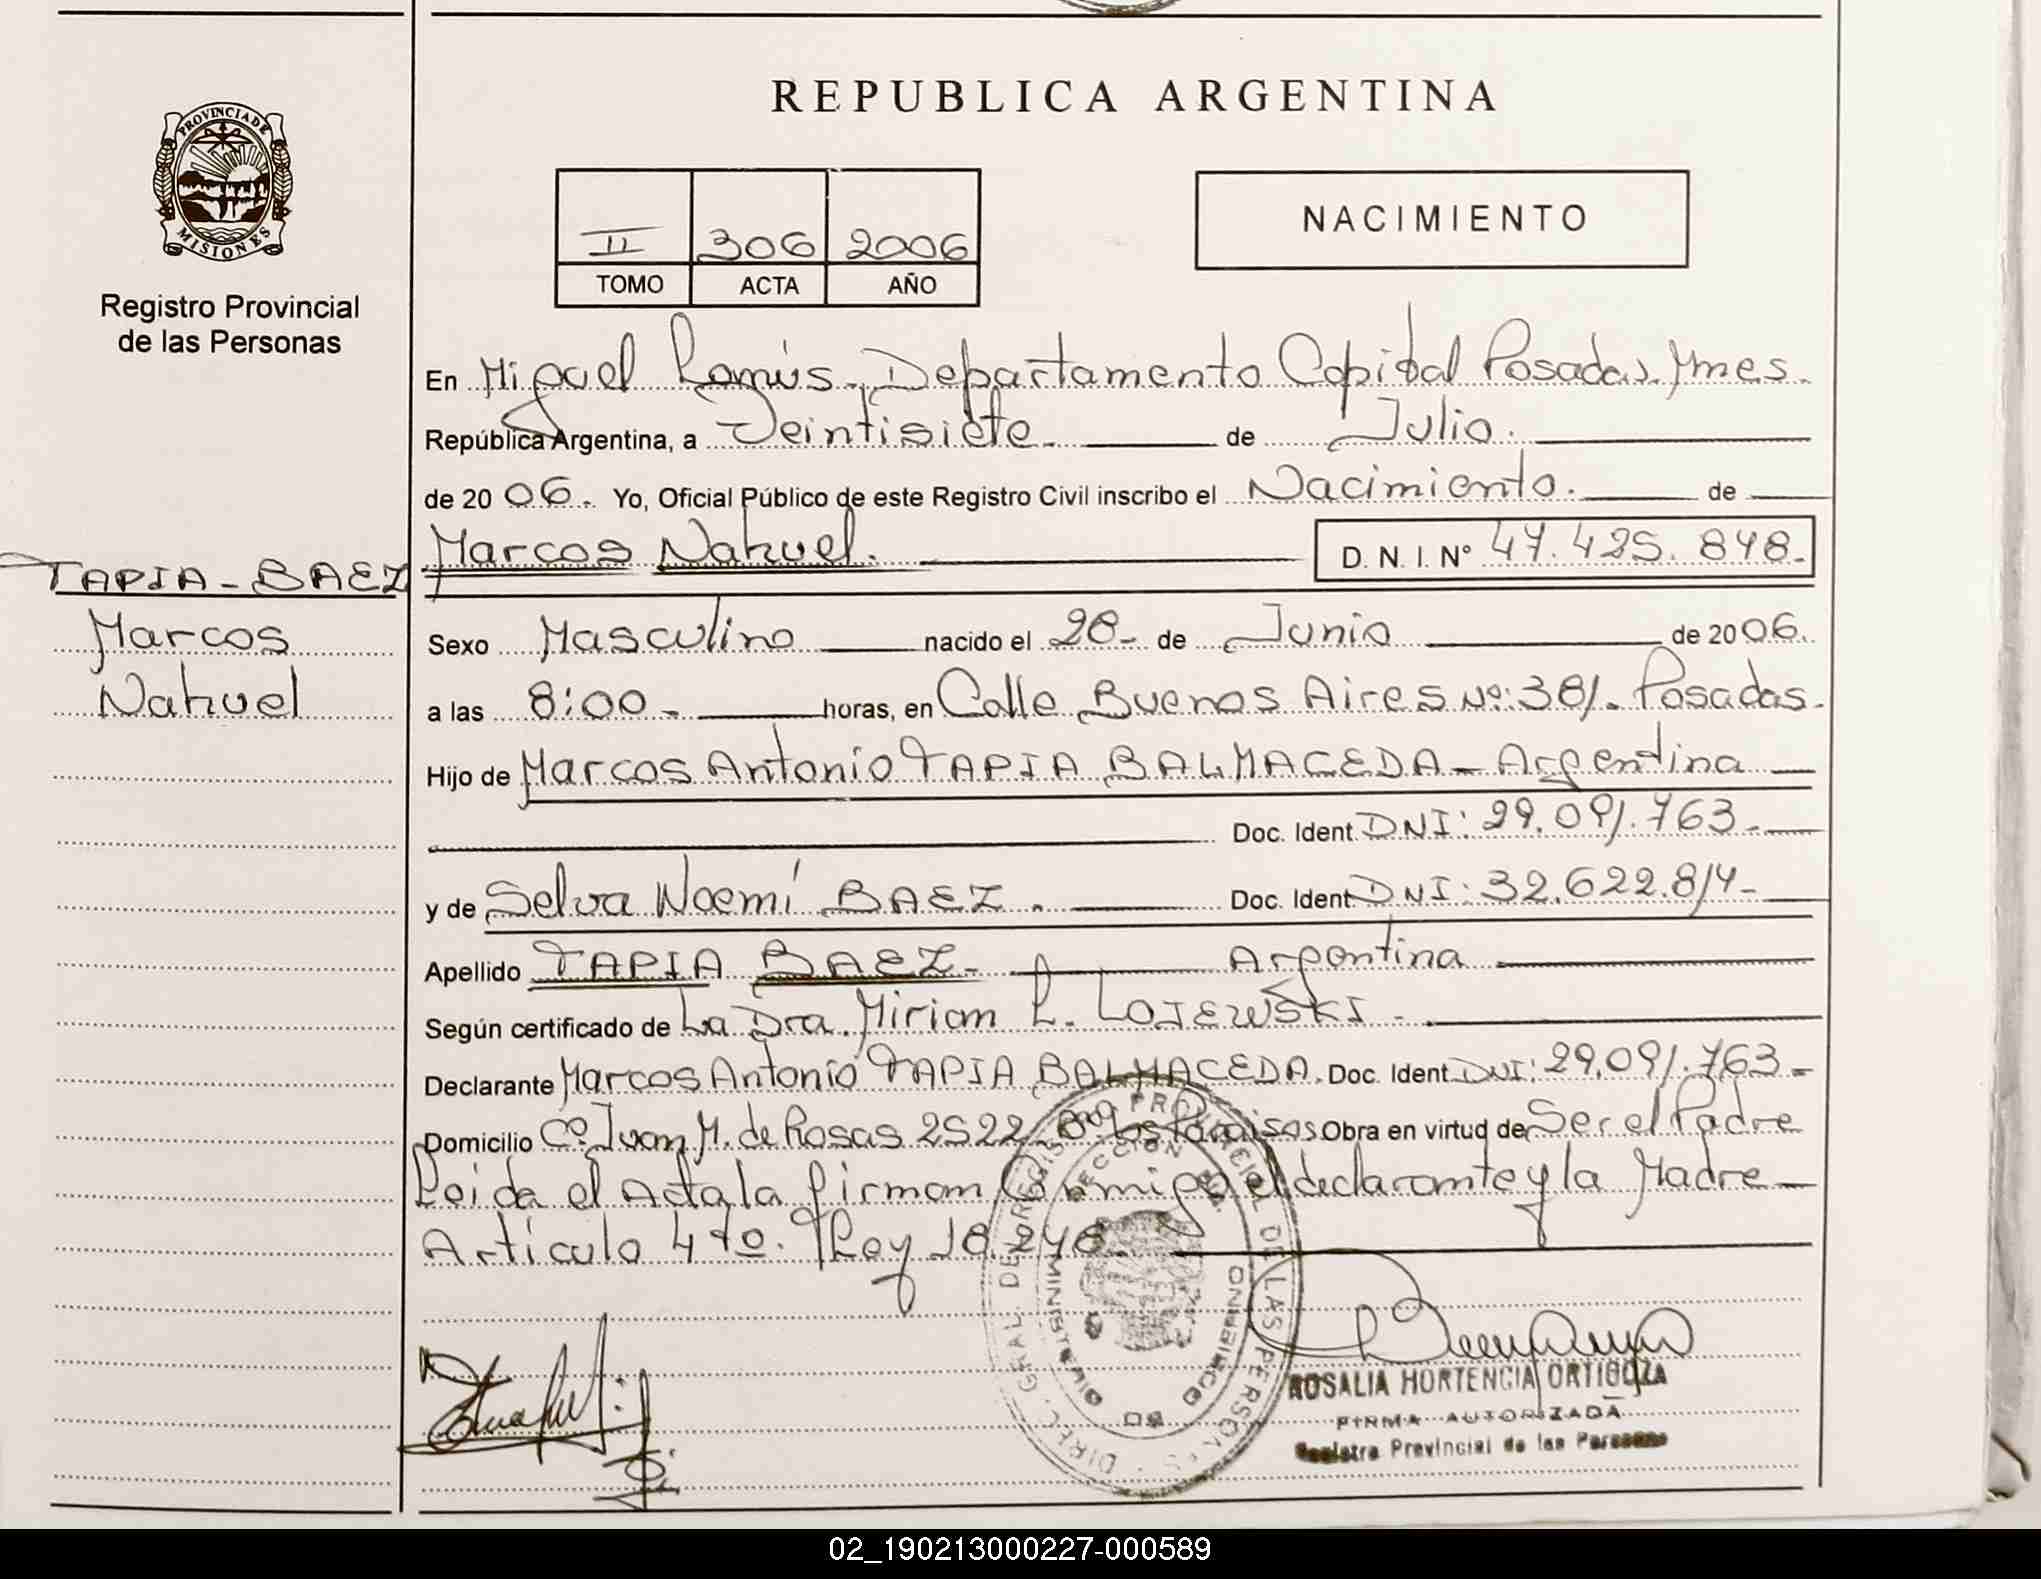 PROVINCIA DE
MISIONES
Registro Provincial
de las Personas
TAPIA - BAEZ
Marcos
Nahuel
REPUBLICA ARGENTINA
II 306 2006
TOMO ACTA AÑO
NACIMIENTO
En Miguel Lanús, Departamento Capital Posadas, Mnes.
República Argentina, a Veintisiete. de Julio.
de 20 06. Yo, Oficial Público de este Registro Civil inscribo el Nacimiento. de
Marcos Nahuel. D. N. I. N° 47.425.848.-
Sexo Masculino nacido el 28- de Junio de 20 06.
a las 8:00.- horas, en Calle Buenos Aires Nº: 381. Posadas.
Hijo de Marcos Antonio TAPIA BALMACEDA - Argentina
Doc. Ident. DNI: 29.091.763.-
y de Selva Noemí BAEZ. Doc. Ident DNI: 32.622.814-
Apellido TAPIA BAEZ- Argentina
Según certificado de La Dra. Miriam L. LOJEWSKI.-
Declarante Marcos Antonio TAPIA BALMACEDA. Doc. Ident DNI: 29.091.763-
Domicilio Cº. Juan M. de Rosas 2522- Bº Los Paraisos Obra en virtud de Ser el Padre
Leida el Acta la firman Conmigo el declarante y la Madre-
Articulo 4to. Ley 18.248.
DIREC. GRAL. DE REGISTRO PROVINCIAL DE LAS PERSONAS
MINISTERIO DE GOBIERNO
ROSALIA HORTENCIA ORTIGOZA
FIRMA AUTORIZADA
Registro Provincial de las Personas
02_190213000227-000589